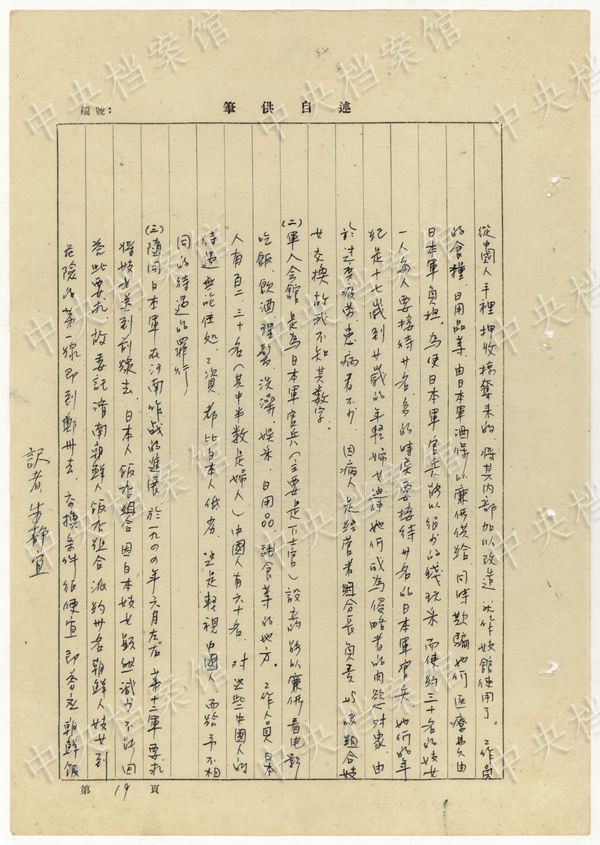 述自供筆
編號：
從中國人手裡押收掠奪来的 將其内部加以改造 北作妓館使用了。工作員
的食糧、日用品等由日本軍酒保以廉價供給 同時欺騙她们 医療費由
日本軍負担。為使日本軍官兵能以很少的錢玩樂 而使約三十名的妓女
一人每人要接待廿名 多的時候要接待卅名的日本軍官兵 她们的年
紀是十七歲到廿歲的年輕婦女 迫使她们成為侵略者的肉慾对象 由
於过度疲勞患病者不少 因病人是經营者組合長負責 与該組合妓
女交換 故我不知其数字。
(二)軍人会館 是為日本軍官兵(主要是下士官)設立的能以廉價看电影
吃飯、飲酒 理髮、洗澡、娛樂、日用品、副食等的地方。工作人員日本
人有百二、三十名(其中半数是婦人)中國人有六十名。对这些中國人的
待遇無論住处、工資都比日本人低劣 这是輕視中國人 而給予不相
同的待遇的罪行
(三)隨同日本軍在河南作战的進展 於一九四四年六月左右 第十二軍要求
將妓女送到前線去、日本人飯店組合因日本妓女顯然減少不能回
答此要求 故委託濟南朝鮮人飯店組合派約卅名朝鮮人妓女到
危險的第一線即到鄭州去。交換条件很便宜 即答应朝鮮飯
記者 朱靜宣
第 19 頁
中央档案馆